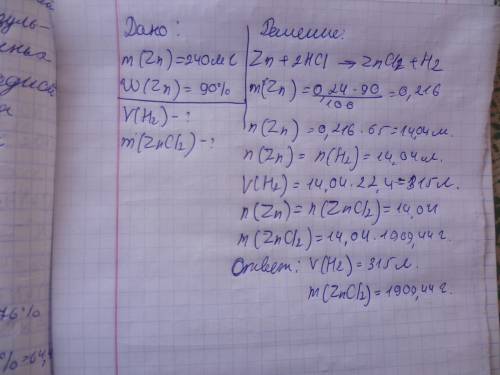 Дано:
m(Zn)=240мг
W(Zn)=90%
V(H2)-?
m(ZnCl2)-?
Решение:
Zn+2HCl → ZnCl2+H2
m(Zn)=0,24·90/100=0,216
n(Zn)=0,216·65=14,04м.
n(Zn)=n(H2)=14,04м.
V(H2)=14,04·22,4=315л.
n(Zn)=n(ZnCl2)=14,04
m(ZnCl2)=14,04·1909,44г.
Ответ: V(H2)=315л.
m(ZnCl2)=1909,44г.
уль-
ных
76%
%=64,4